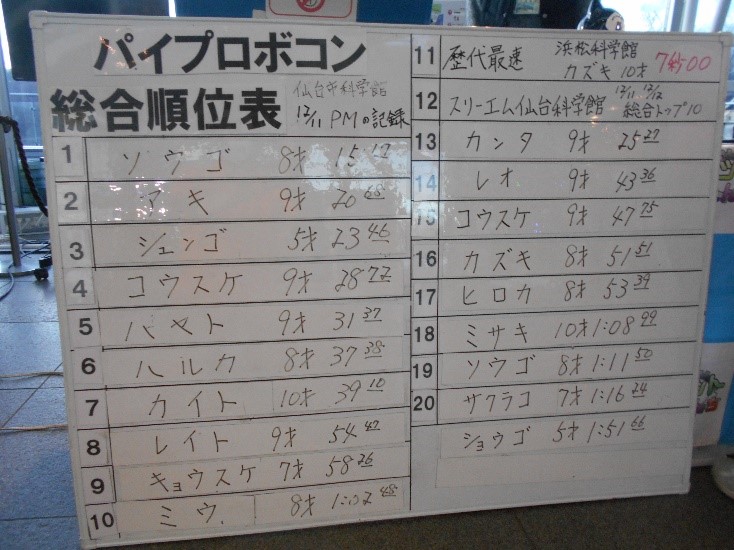 パイプロボコン
総合順位表
仙台市科学館
12/11 PMの記録
1 ソウゴ 8才 15 17
2 アキ 9才 20 68
3 シュンゴ 5才 23 46
4 コウスケ 9才 28 72
5 ハヤト 9才 31 37
6 ハルカ 8才 37 38
7 カイト 10才 39 10
8 レイト 9才 54 47
9 キョウスケ 7才 58 26
10 ミウ 8才 1:02 48
11 歴代最速 浜松科学館
カズキ 10才 7秒00
12 スリーエム仙台科学館 12/11 12/12
総合トップ10
13 カンタ 9才 25 27
14 レオ 9才 43 36
15 コウスケ 9才 47 75
16 カズキ 8才 51 51
17 ヒロカ 8才 53 39
18 ミサキ 10才 1:08 99
19 ソウゴ 8才 1:11 50
20 サクラコ 7才 1:16 24
ショウゴ 5才 1:51 66